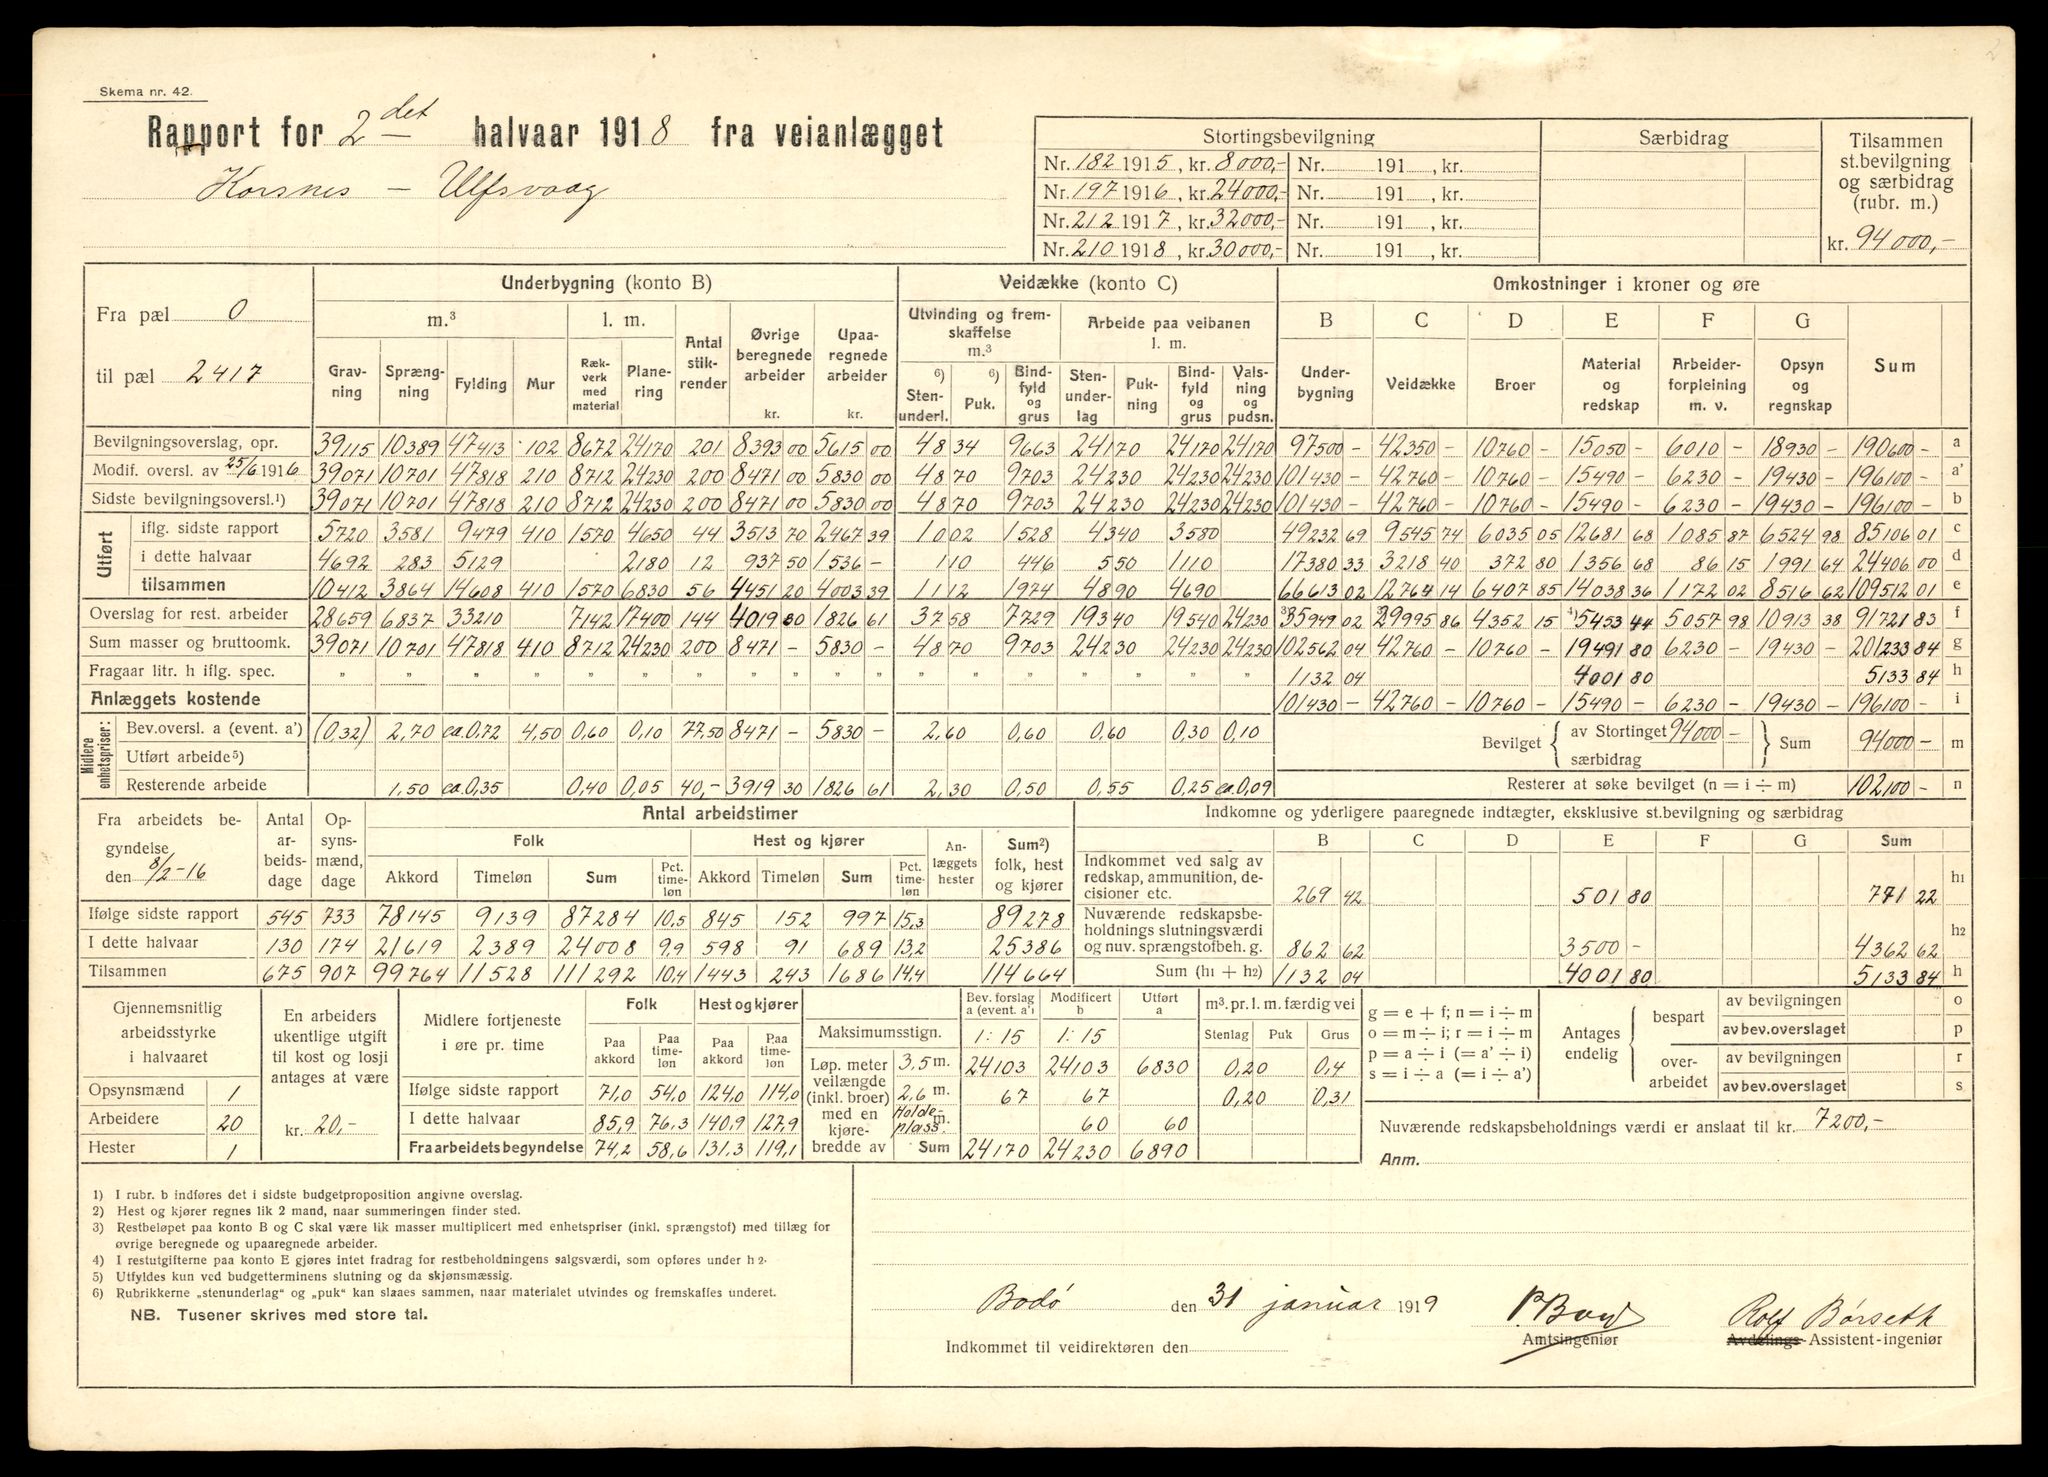 Skema nr. 42.
Rapport for 2det halvaar 1918 fra veianlægget
Korsnes – Ulfsvaag
Stortingsbevilgning Særbidrag Tilsammen st.bevilgning og særbidrag (rubr. m.)
Nr. 182 1915, kr. 8000,- Nr. 191 , kr.
Nr. 197 1916, kr. 24000,- Nr. 191 , kr.
Nr. 212 1917, kr. 32000,- Nr. 191 , kr.
Nr. 210 1918, kr. 30000,- Nr. 191 , kr. kr. 94000,-
Fra pæl 0
til pæl 2417
Underbygning (konto B) Veidække (konto C) Omkostninger i kroner og øre
m.³ l. m. Antal stikrender Øvrige beregnede arbeider kr. Upaaregnede arbeider kr. Utvinding og fremskaffelse m.³ Arbeide paa veibanen l. m. B C D E F G Sum
Gravning Sprængning Fylding Mur Rækverk med material Planering 6) Stenunderl. Puk. 6) Bindfyld og grus Stenunderlag Pukning Bindfyld og grus Valsning og pudsn. Underbygning Veidække Broer Material og redskap Arbeiderforpleining m. v. Opsyn og regnskap
Bevilgningsoverslag, opr. 39115 10389 47413 102 8672 24170 201 8393 00 5615 00 4834 9663 24170 24170 24170 97500 - 42350 - 10760 - 15050 - 6010 - 18930 - 190600 - a
Modif. oversl. av 25/6 1916 39071 10701 47818 210 8712 24230 200 8471 00 5830 00 4870 9703 24230 24230 24230 101430 - 42760 - 10760 - 15490 - 6230 - 19430 - 196100 - a'
Sidste bevilgningsoversl.¹) 39071 10701 47818 210 8712 24230 200 8471 00 5830 00 4870 9703 24230 24230 24230 101430 - 42760 - 10760 - 15490 - 6230 - 19430 - 196100 - b
Utført
iflg. sidste rapport 5720 3581 9479 410 1570 4650 44 3513 70 2467 39 1002 1528 4340 3580 49232 69 9545 74 6035 05 12681 68 1085 87 6524 98 85106 01 c
i dette halvaar 4692 283 5129 2180 12 937 50 1536 - 110 446 550 1110 17380 33 3218 40 372 80 1356 68 86 15 1991 64 24406 00 d
tilsammen 10412 3864 14608 410 1570 6830 56 4451 20 4003 39 1112 1974 4890 4690 66613 02 12764 14 6407 85 14038 36 1172 02 8516 62 109512 01 e
Overslag for rest. arbeider 28659 6837 33210 7142 17400 144 4019 80 1826 61 3758 7729 19340 19540 24230 ³)35949 02 29995 86 4352 15 ⁴)5453 44 5057 98 10913 38 91721 83 f
Sum masser og bruttoomk. 39071 10701 47818 410 8712 24230 200 8471 - 5830 - 4870 9703 24230 24230 24230 102562 04 42760 - 10760 - 19491 80 6230 - 19430 - 201233 84 g
Fragaar litr. h iflg. spec. " " " " " " " " " " " " " " 1132 04 4001 80 5133 84 h
Anlæggets kostende 101430 - 42760 - 10760 - 15490 - 6230 - 19430 - 196100 - i
Midlere enhetspriser:
Bev.oversl. a (event. a') (0,32) 2,70 ca.0,72 4,50 0,60 0,10 77,50 8471 - 5830 - 2,60 0,60 0,60 0,30 0,10 Bevilget av Stortinget 94000 - særbidrag Sum 94000 - m
Utført arbeide⁵)
Resterende arbeide 1,50 ca.0,35 0,40 0,05 40,- 3919 30 1826 61 2,30 0,50 0,55 0,25 ca.0,09 Resterer at søke bevilget (n = i ÷ m) 102100 - n
Fra arbeidets begyndelse den 8/2-16 Antal arbeidsdage Opsynsmænd, dage Antal arbeidstimer Indkomne og yderligere paaregnede indtægter, eksklusive st.bevilgning og særbidrag
Folk Hest og kjører Anlæggets hester Sum²) folk, hest og kjører B C D E F G Sum
Akkord Timeløn Sum Pct. timeløn Akkord Timeløn Sum Pct. timeløn
Indkommet ved salg av redskap, ammunition, decisioner etc. 269 42 501 80 771 22 h1
Ifølge sidste rapport 545 733 78145 9139 87284 10,5 845 152 997 15,3 89278
Nuværende redskapsbeholdnings slutningsværdi og nuv. sprængstofbeh. g. 862 62 3500 - 4362 62 h2
I dette halvaar 130 174 21619 2389 24008 9,9 598 91 689 13,2 25386
Tilsammen 675 907 99764 11528 111292 10,4 1443 243 1686 14,4 114664 Sum (h1 + h2) 1132 04 4001 80 5133 84 h
Gjennemsnitlig arbeidsstyrke i halvaaret
Opsynsmænd 1
Arbeidere 20
Hester 1
En arbeiders ukentlige utgift til kost og losji antages at være
kr. 20,-
Midlere fortjeneste i øre pr. time Folk Hest og kjører
Paa akkord Paa timeløn Paa akkord Paa timeløn
Ifølge sidste rapport 71,0 54,0 124,0 114,0
I dette halvaar 85,9 76,3 140,9 127,9
Fra arbeidets begyndelse 74,2 58,6 131,3 119,1
Bev. forslag a (event. a') Modificert b Utført a m³. pr. l. m. færdig vei
Maksimumsstign. 1:15 1:15 Stenlag Puk Grus
Løp. meter veilængde (inkl. broer) med en kjørebredde av
3,5 m. 24103 24103 6830 0,20 0,4
2,6 m. 67 67 0,20 0,31
Holdeplass m. 60 60
Sum 24170 24230 6890
g = e + f; n = i ÷ m
o = m ÷ i; r = i ÷ m
p = a ÷ i (= a' ÷ i)
s = i ÷ a (= i ÷ a')
Antages endelig
bespart av bevilgningen o
av bev.overslaget p
overarbeidet av bevilgningen r
av bev.overslaget s
Nuværende redskapsbeholdnings værdi er anslaat til kr. 7200,-
Anm.
1) I rubr. b indføres det i sidste budgetproposition angivne overslag.
2) Hest og kjører regnes lik 2 mand, naar summeringen finder sted.
3) Restbeløpet paa konto B og C skal være lik masser multiplicert med enhetspriser (inkl. sprængstof) med tillæg for
øvrige beregnede og upaaregnede arbeider.
4) I restutgifterne paa konto E gjøres intet fradrag for restbeholdningens salgsværdi, som opføres under h2.
5) Utfyldes kun ved budgetterminens slutning og da skjønsmæssig.
6) Rubrikkerne „stenunderlag" og „puk" kan slaaes sammen, naar materialet utvindes og fremskaffes underet.
NB. Tusener skrives med store tal.
Bodø den 31 januar 1919
Rolf Børseth
Amtsingeniør Avdelings- Assistent-ingeniør
Indkommet til veidirektøren den